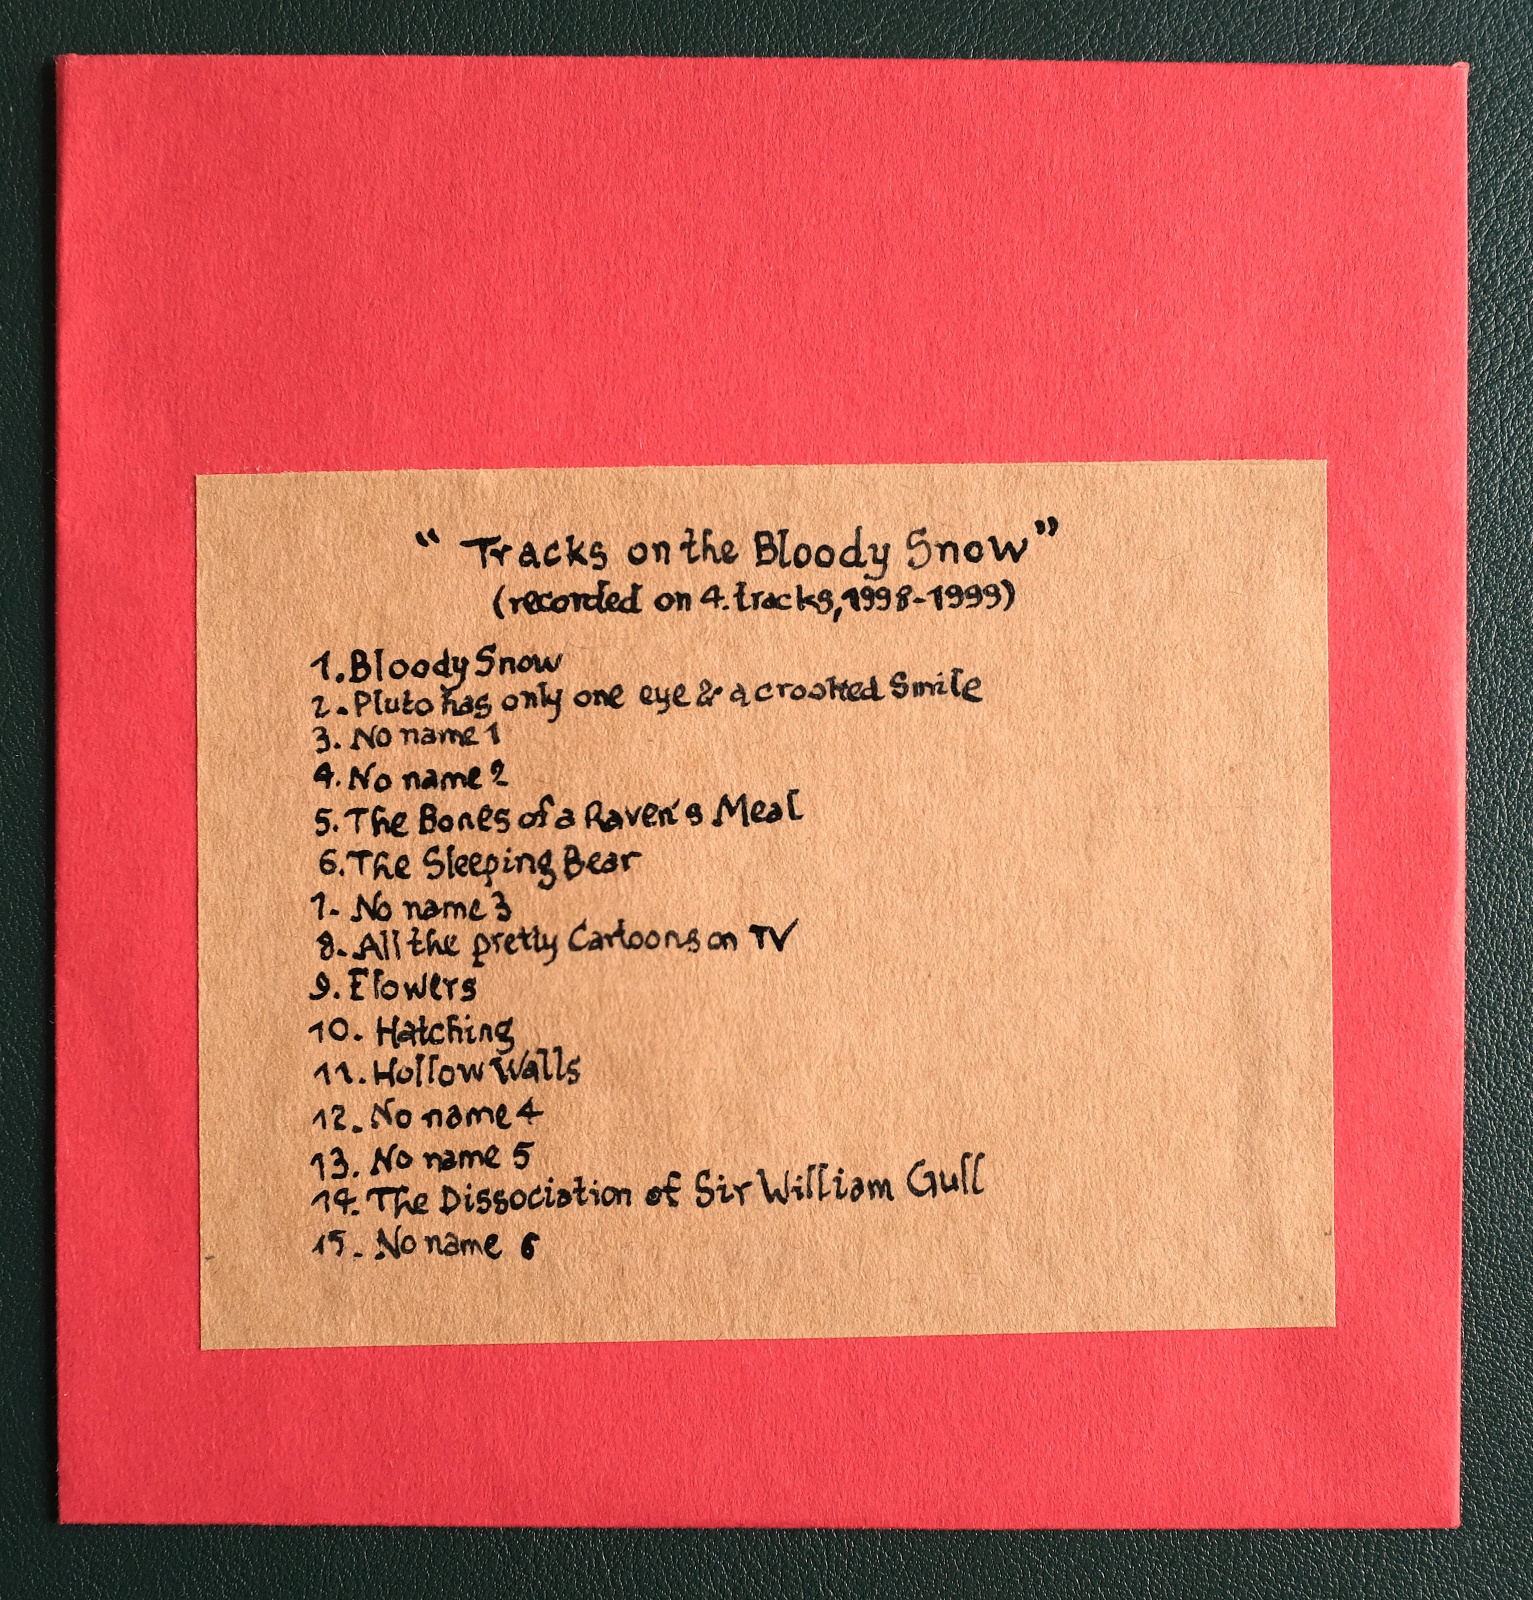 “Tracks on the Bloody Snow”
(recorded on 4.tracks, 1998-1999)
1. Bloody Snow
2. Pluto has only one eye & a crooked Smile
3. No name 1
4. No name 2
5. The Bones of a Raven's Meal
6. The Sleeping Bear
7. No name 3
8. All the pretty Cartoons on TV
9. Flowers
10. Hatching
11. Hollow Walls
12. No name 4
13. No name 5
14. The Dissociation of Sir William Gull
15. No name 6